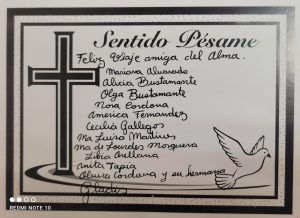 Sentido Pésame
Feliz Viaje amiga del Alma.
Mariana Alvarado
Alicia Bustamante
Olga Bustamante
Nora Cordona
America Fernandez
Cecilia Gallegos
Ma Luisa Martinez
Ma de Lourdes Mosquera
Libia Orellana
Anita Tapia
y su hermana
Gladis
REDMI NOTE 10